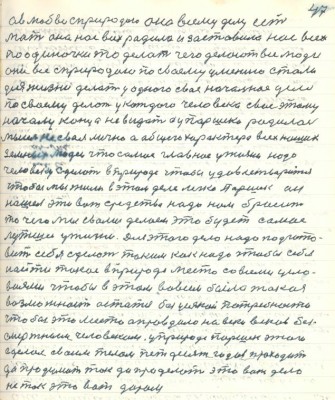 47
а в любви с природою она всему делу есть
мать она нас всех родила и заставила нас всех
по одиночки это делать чего делают все люди
они все с природою по своему умению стали
для жизни делать у одного свое начальное дело
по своему делают у каждого человека свое этому
началу конца не видать а у паршека родилася
мысль не своя лично а общего характера всех наших
земных людей что самое главное у жизни надо
человеку сделать в природе чтобы удовлетворится
чтобы мы жили в этом деле легко Паршек он
нашел это вот средство надо нам бросить
то чего мы своими делаем это будет самое
лутшее у жизни. Для этого дело надо подгото-
вить себя сделать таким как надо чтобы себя
найти такое в природе место со всеми усло-
виями чтобы в этом вовсем была такая
возможность остатся без всякой потребности
чтобы это место оправдало на веки веков без-
смертным человеком. у природе паршек этого
сделал своим телом петдесят годов проходит
да продумать так да проделать это вот дело
не так это вот даром